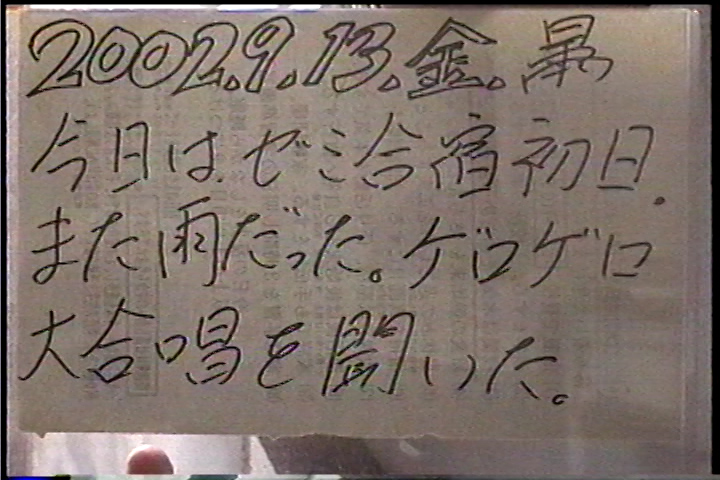 2002.9.13.金.
今日は、ゼミ合宿初日.
また雨だった。ゲロゲロ
大合唱を聞いた。